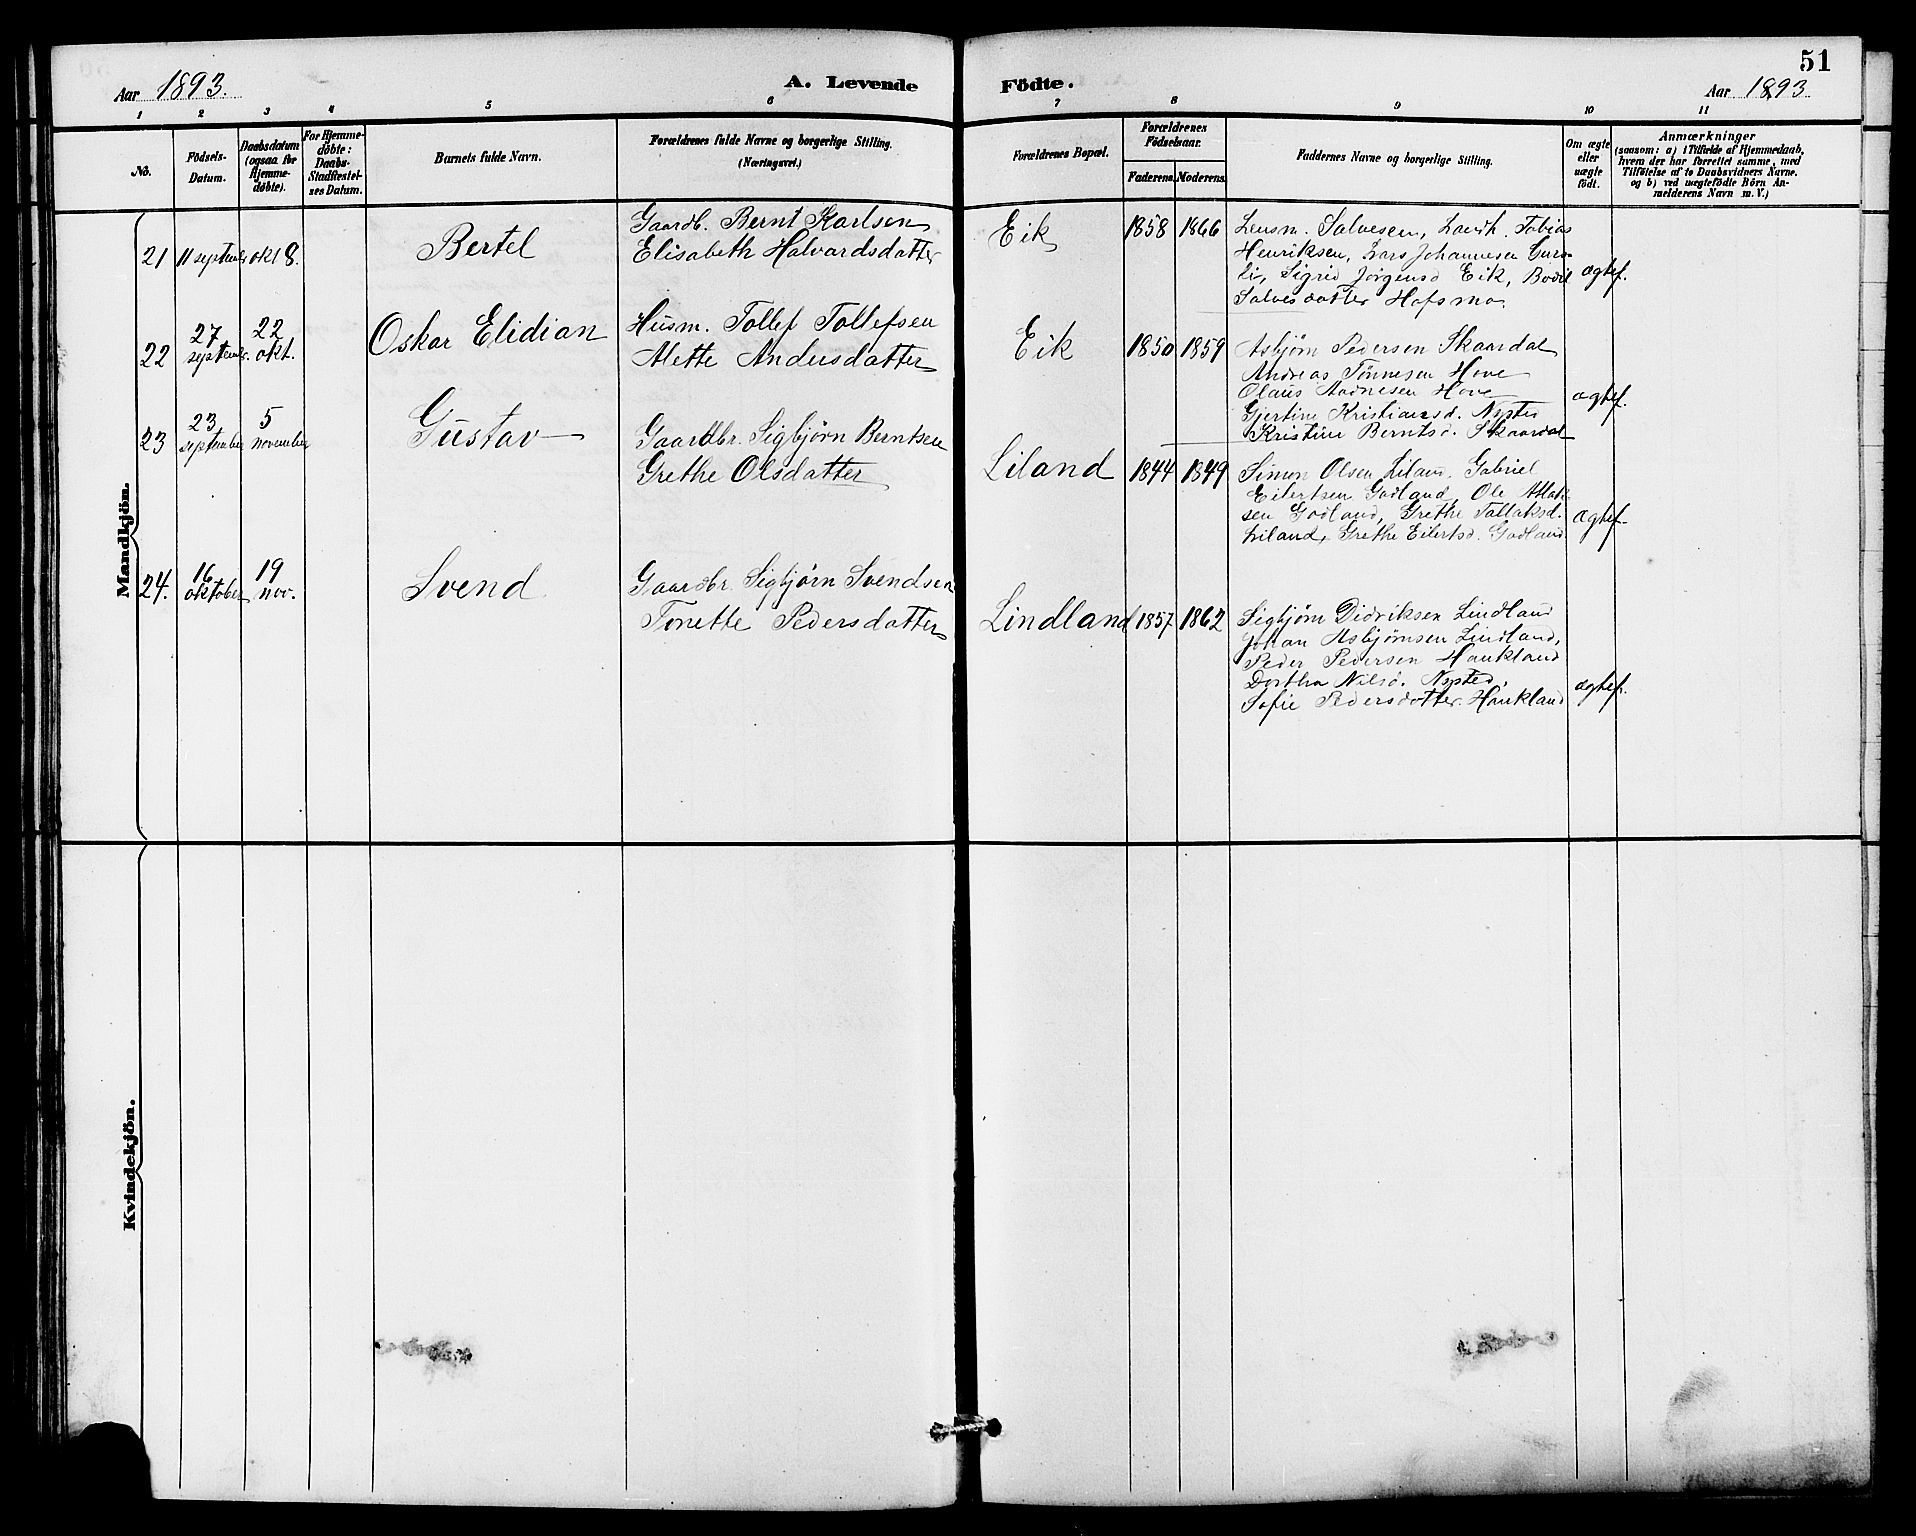 51
Aar 1893.
A. Levende
Födte.
Aar 1893
1 2 3 4 5 6 7 8 9 10 11
No.
Födsels-
Datum.
Daabsdatum
(ogsaa for
Hjemme-
döbte).
For Hjemme-
döbte:
Daabs-
Stadfæstel-
ses Datum.
Barnets fulde Navn.
Forældrenes fulde Navne og borgerlige Stilling.
(Næringsvei.)
Forældrenes Bopæl.
Forældrenes
Födselsaar.
Faderens.
Moderens.
Faddernes Navne og borgerlige Stilling.
Om ægte
eller
uægte
födt.
Anmærkninger
(saasom: a) i Tilfælde af Hjemmedaab,
hvem der har forrettet samme, med
Tilföielse af to Daabsvidners Navne.
og b) ved uægtefödte Börn An-
melderens Navn m. V.)
Mandkjön.
21 11 septembr okt 8. Bertel
Gaardb. Bernt Karlsen
Elisabeth Halvardsdatter
Eik 1858 1866
Lensm. Salvesen, Tobias
Henriksen, Lars Johannesen Guro-
li, Sigrid Jørgensd Eik, Bodil
Salvesdatter Hofsmo.
ægtef.
22 27 septembr. 22 okt. Oskar Elidian
Husm. Tollef Tollefsen
Alette Andersdatter
Eik 1850 1859
Asbjørn Pedersen Skaardal
Andreas Tönnesen Hove
Olaus Aadnesen Hove
Gjertine Kristiansd. Nysted
Kristine Berntsd. Skaardal
ægtef.
23 23 september 5 november Gustav
Gaardbr. Sigbjørn Berntsen
Grethe Olsdatter
Liland 1844 1849
Simon Olsen Liland, Gabriel
Eilertsen Godland, Ole Atlak-
sen Godland, Grethe Tallaksd.
Liland, Grethe Eilertsd. Godland.
ægtef.
24. 16 oktober 19 nov. Svend
Gaardbr. Sigbjørn Svendsen
Tonette Pedersdatter
Lindland 1857 1862
Sigbjørn Didriksen Lindland
Johan Asbjørnsen Lindland,
Peder Pedersen Haukland
Dorthea Nilsd. Nysted,
Sofie Pedersdatter Haukland
ægtef.
Kvindekjön.